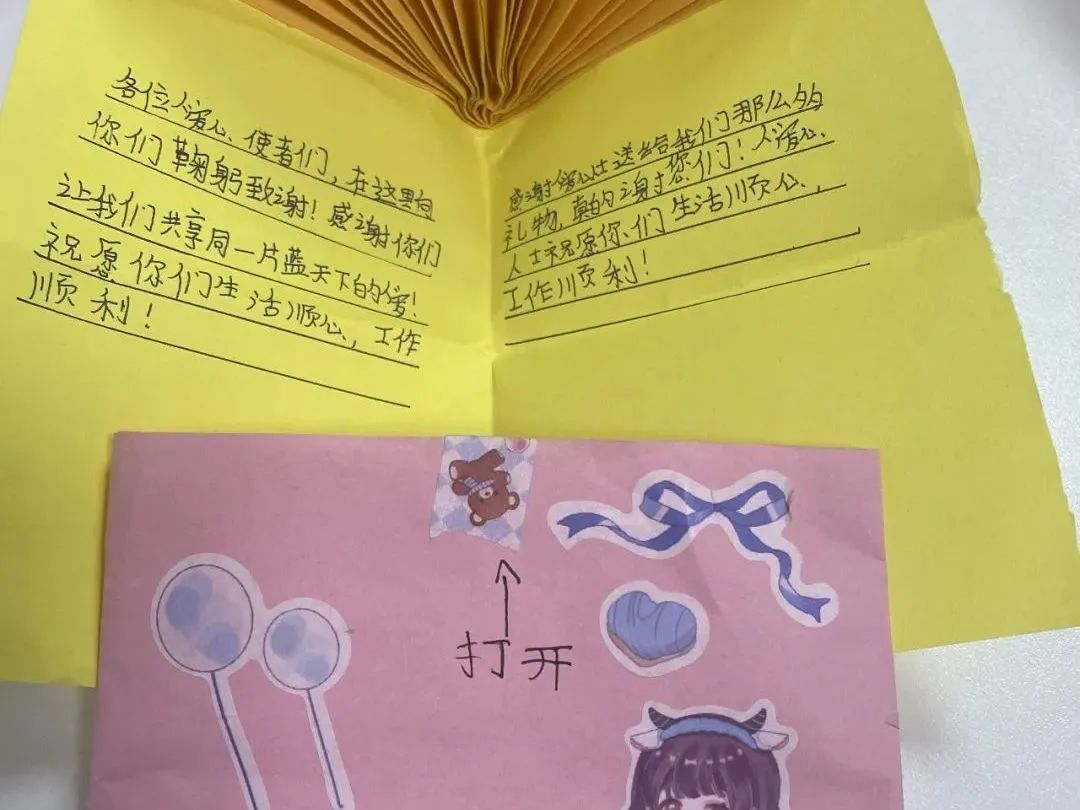 各位人爱心使者们，在这里向
你们鞠躬致谢！感谢你们
让我们共享同一片蓝天下的爱！
祝愿你们生活顺心，工作
顺利！
感谢爱心人士送给我们那么多
礼物，真的谢谢您们！人爱心
人士祝愿你们生活顺心，
工作顺利！
打开